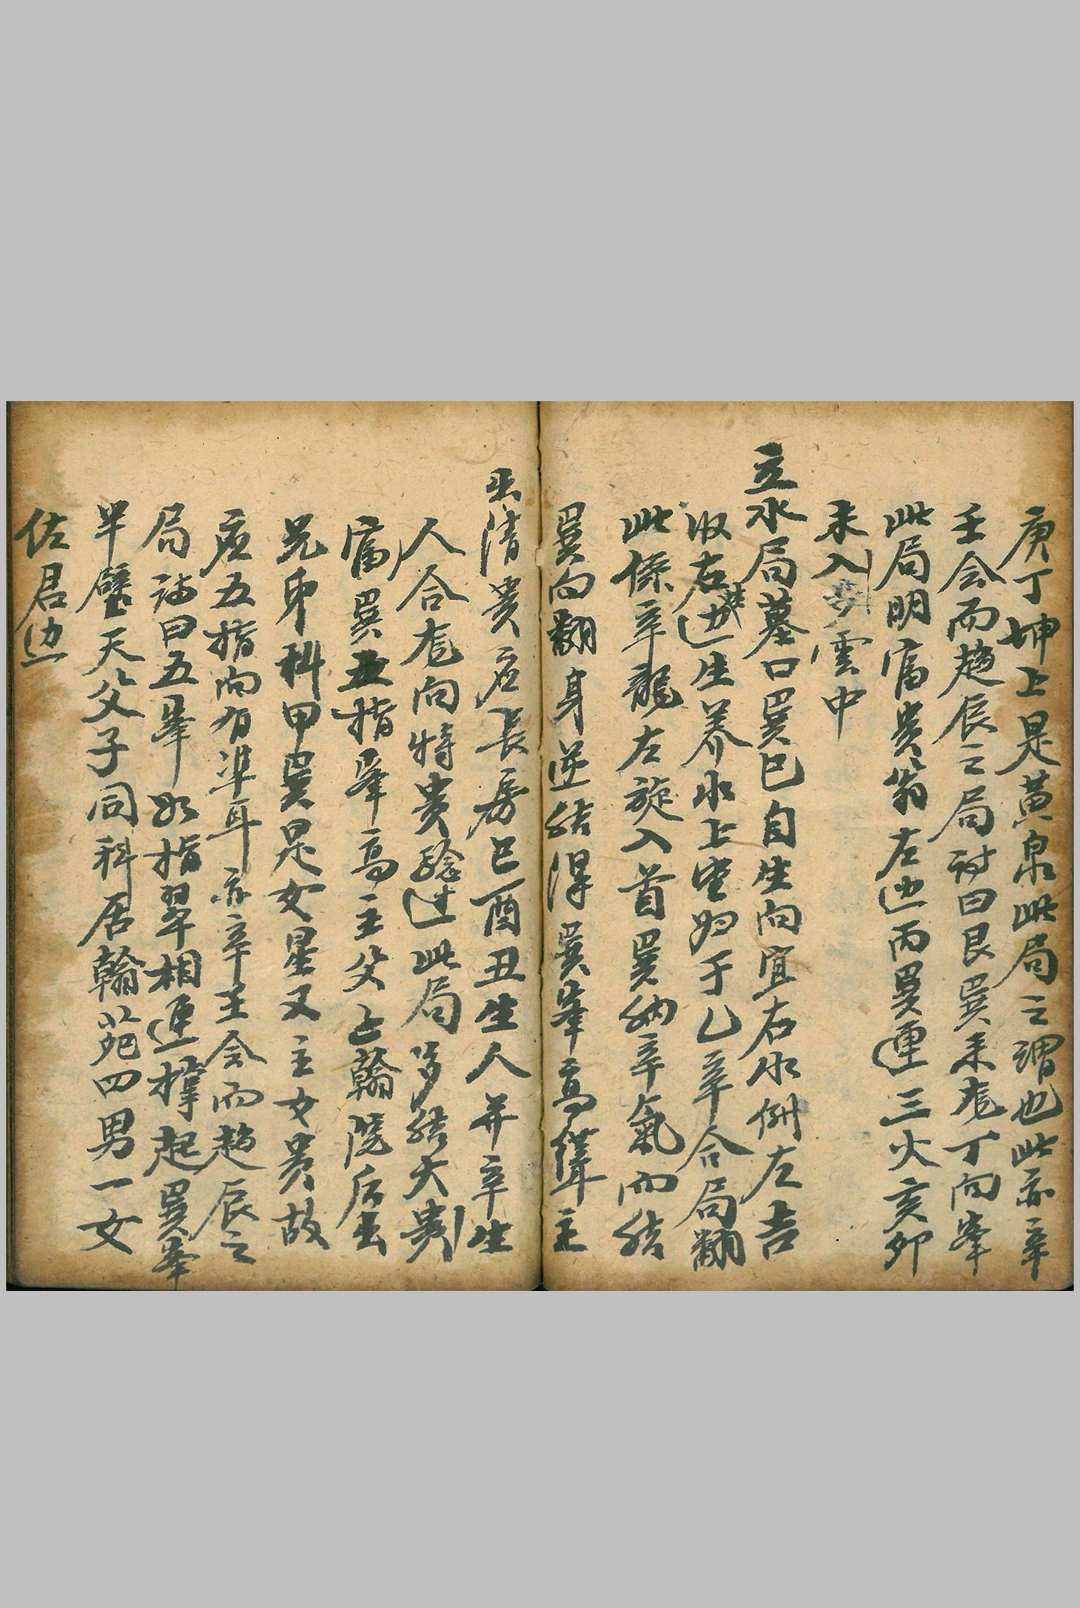 庚丁坤上是黄泉此局之谓也此亦辛
壬会而趋辰之局诗曰艮巽未庭丁向峯
此局明富贵翁左边丙巽連三火亥卯
未入步雲中
立水局墓口巽巳自生向宜右水倒左吉
收左边生养水上堂归于乙辛合局翻
此係辛龍左旋入首巽纳辛氣而结
巽向翻身逆结得巽峯高耸主
出清贵应長房巳酉丑生人并辛生
人合庭向特贵验过此局多结大贵
富巽五指峯高主父占翰院后出
兄弟科甲巽是女星又主女贵故
应五指向有準耳亦辛壬会而趋辰之
局诗曰五峯如指翠相連撑起巽峯
半壁天父子同科居翰苑四男一女
佐君边